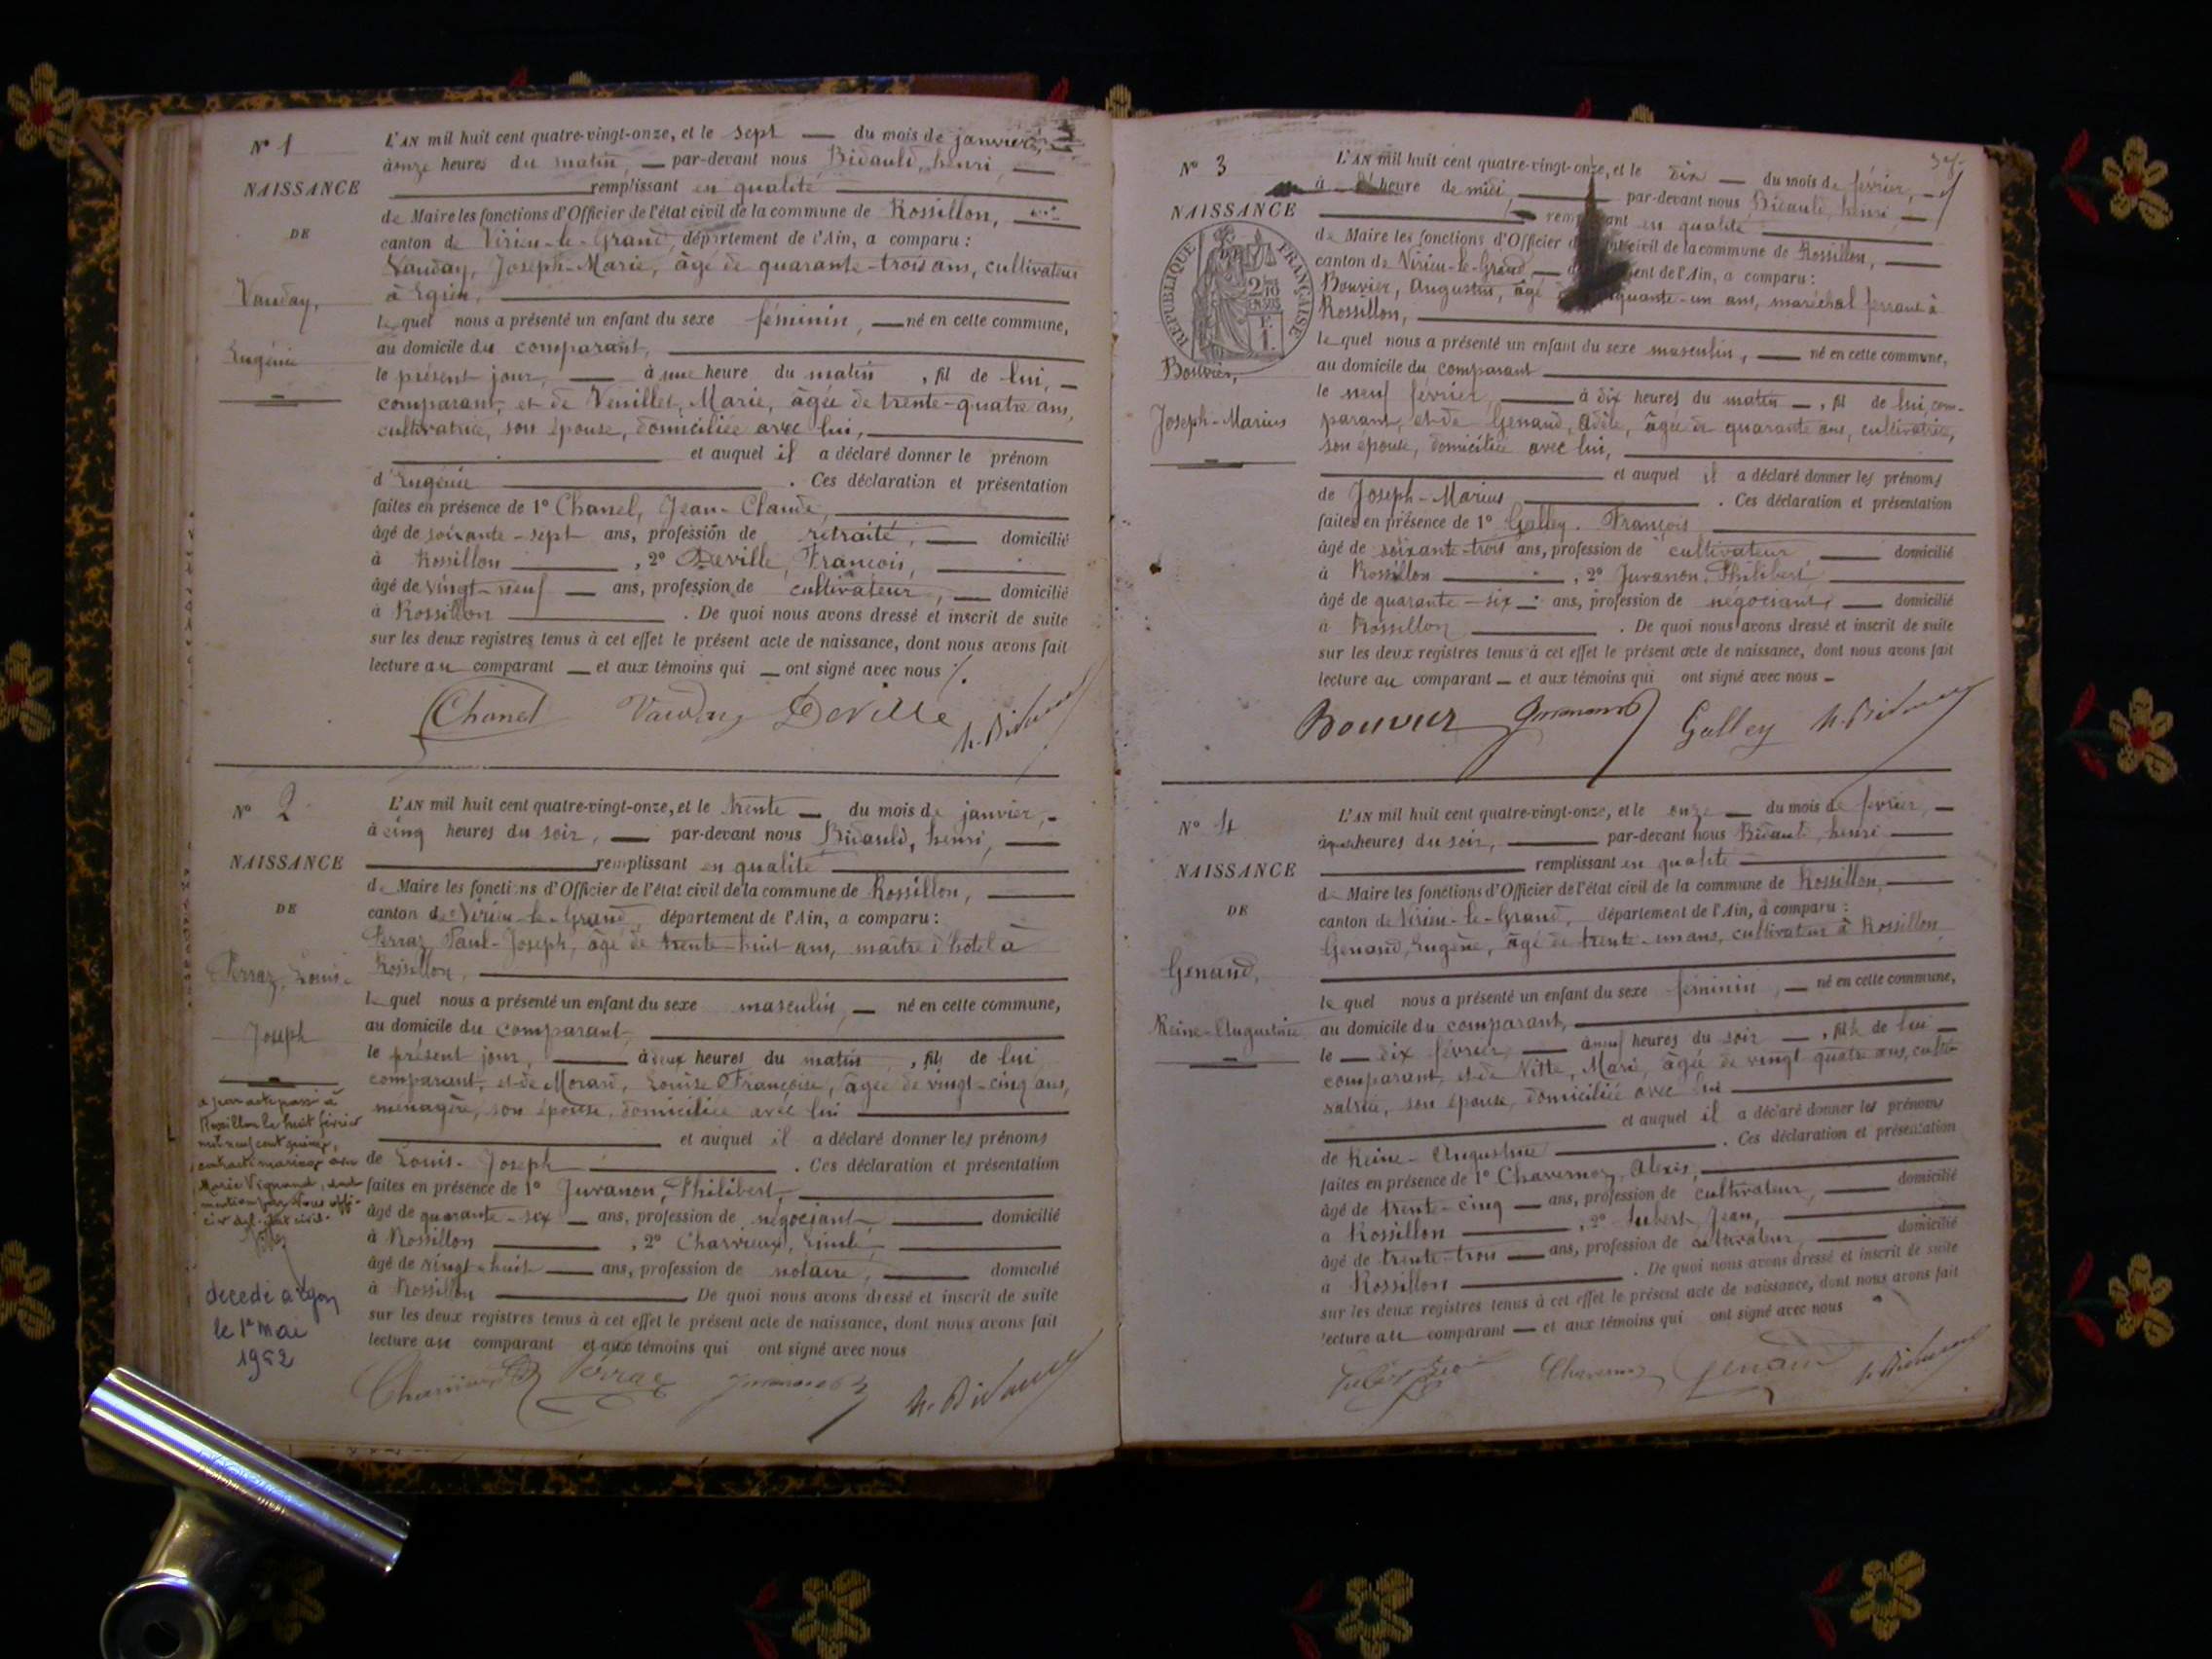 N° 1
NAISSANCE
DE
Vauday,
Eugénie
L'AN mil huit cent quatre-vingt-onze, et le sept — du mois de janvier,
à onze heures du matin, — par-devant nous Bidauld, henri, —
remplissant en qualité
de Maire les fonctions d'Officier de l'état civil de la commune de Rossillon,
canton de Virieu-le-Grand, département de l'Ain, a comparu :
Vauday, Joseph-Marie, âgé de quarante-trois ans, cultivateur
à Egieu,
lequel nous a présenté un enfant du sexe féminin, — né en cette commune,
au domicile du comparant,
le présent jour, — à une heure du matin , fil de lui, —
comparant, et de Veuillet, Marie, âgée de trente-quatre ans,
cultivatrice, son épouse, domiciliée avec lui,
et auquel il a déclaré donner le prénom
d'Eugénie . Ces déclaration et présentation
faites en présence de 1° Chanel, Jean-Claude,
âgé de soixante-sept ans, profession de retraité, — domicilié
à Rossillon , 2° Deville, François,
âgé de vingt-neuf — ans, profession de cultivateur, — domicilié
à Rossillon . De quoi nous avons dressé et inscrit de suite
sur les deux registres tenus à cet effet le présent acte de naissance, dont nous avons fait
lecture au comparant — et aux témoins qui — ont signé avec nous /.
Chanel Vauday Deville h. Bidauld
N° 2
NAISSANCE
DE
Perraz, Louis-
Joseph
a par acte passé à
Rossillon le huit février
mil neuf cent quinze,
contracté mariage avec
Marie Vignand, dont
mention par Nous offi-
cier de l'état civil.
décédé a Lyon
le 1er mai
1952
L'AN mil huit cent quatre-vingt-onze, et le trente — du mois de janvier, -
à cinq heures du soir, — par-devant nous Bidauld, henri, —
remplissant en qualité
de Maire les fonctions d'Officier de l'état civil de la commune de Rossillon,
canton de Virieu-le-Grand, département de l'Ain, a comparu :
Perraz, Paul-Joseph, âgé de trente-huit ans, maître d'hôtel à
Rossillon,
lequel nous a présenté un enfant du sexe masculin, — né en cette commune,
au domicile du comparant,
le présent jour, — à deux heures du matin , fils de lui
comparant, et de Morard, Louise Françoise, âgée de vingt-cinq ans,
ménagère, son épouse, domiciliée avec lui
et auquel il a déclaré donner les prénoms
de Louis-Joseph . Ces déclaration et présentation
faites en présence de 1° Juvanon, Philibert,
âgé de quarante-six — ans, profession de négociant, domicilié
à Rossillon , 2° Charvieux, Emile,
âgé de vingt-huit — ans, profession de notaire, domicilié
à Rossillon De quoi nous avons dressé et inscrit de suite
sur les deux registres tenus à cet effet le présent acte de naissance, dont nous avons fait
lecture au comparant et aux témoins qui ont signé avec nous
Perraz Juvanon h. Bidauld
N° 3
NAISSANCE
RÉPUBLIQUE FRANÇAISE
Bouvier,
Joseph-Marius
L'AN mil huit cent quatre-vingt-onze, et le dix — du mois de février,
à heure de midi, par-devant nous Bidauld, henri, —
en qualité
de Maire les fonctions d'Officier civil de la commune de Rossillon, —
canton de Virieu-le-Grand, — de l'Ain, a comparu :
Bouvier, Augustin, âgé ans, maréchal ferrant à
Rossillon,
lequel nous a présenté un enfant du sexe masculin, — né en cette commune,
au domicile du comparant
le neuf février, — à dix heures du matin — , fil de lui, com-
parant, et de Genand, Adèle, âgée de quarante ans, cultivatrice,
son épouse, domiciliée avec lui,
et auquel il a déclaré donner les prénoms
de Joseph-Marius . Ces déclaration et présentation
faites en présence de 1° Galley, François
âgé de soixante-trois ans, profession de cultivateur — domicilié
à Rossillon , 2° Juvanon, Philibert
âgé de quarante-six — ans, profession de négociant, — domicilié
à Rossillon . De quoi nous avons dressé et inscrit de suite
sur les deux registres tenus à cet effet le présent acte de naissance, dont nous avons fait
lecture au comparant — et aux témoins qui ont signé avec nous —
Bouvier Juvanon Galley h. Bidauld
N° 4
NAISSANCE
DE
Genand,
Reine-Augustine
L'AN mil huit cent quatre-vingt-onze, et le onze — du mois de février, —
heures du soir, — par-devant nous Bidauld, henri
remplissant en qualité
de Maire les fonctions d'Officier de l'état civil de la commune de Rossillon,
canton de Virieu-le-Grand, département de l'Ain, a comparu :
Genand, Eugène, âgé de trente-un ans, cultivateur à Rossillon,
lequel nous a présenté un enfant du sexe féminin, — né en cette commune,
au domicile du comparant,
le — dix février, — à neuf heures du soir — , fille de lui —
comparant, et de Vitte, Marie, âgée de vingt-quatre ans, culti-
vatrice, son épouse, domiciliée avec lui
et auquel il a déclaré donner les prénoms
de Reine-Augustine . Ces déclaration et présentation
faites en présence de 1° Chavernoz, Alexis,
âgé de trente-cinq — ans, profession de cultivateur, — domicilié
à Rossillon , 2° Jubert, Jean,
âgé de trente-trois — ans, profession de cultivateur, — domicilié
à Rossillon . De quoi nous avons dressé et inscrit de suite
sur les deux registres tenus à cet effet le présent acte de naissance, dont nous avons fait
lecture au comparant — et aux témoins qui ont signé avec nous
Chavernoz Genand h. Bidauld